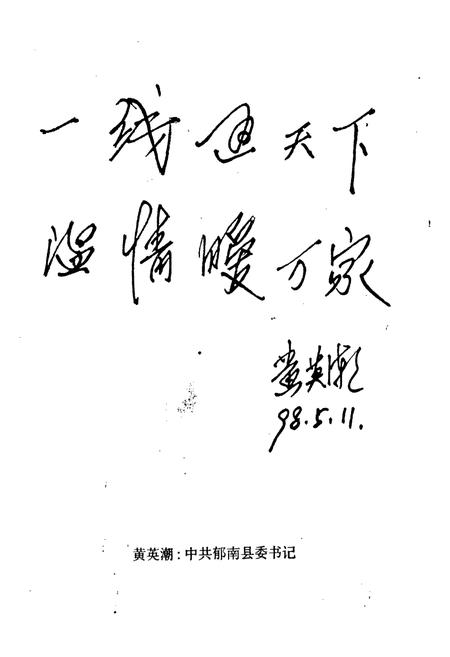 一线通天下
温情暖万家
黄英潮
98.5.11.
黄英潮：中共郁南县委书记